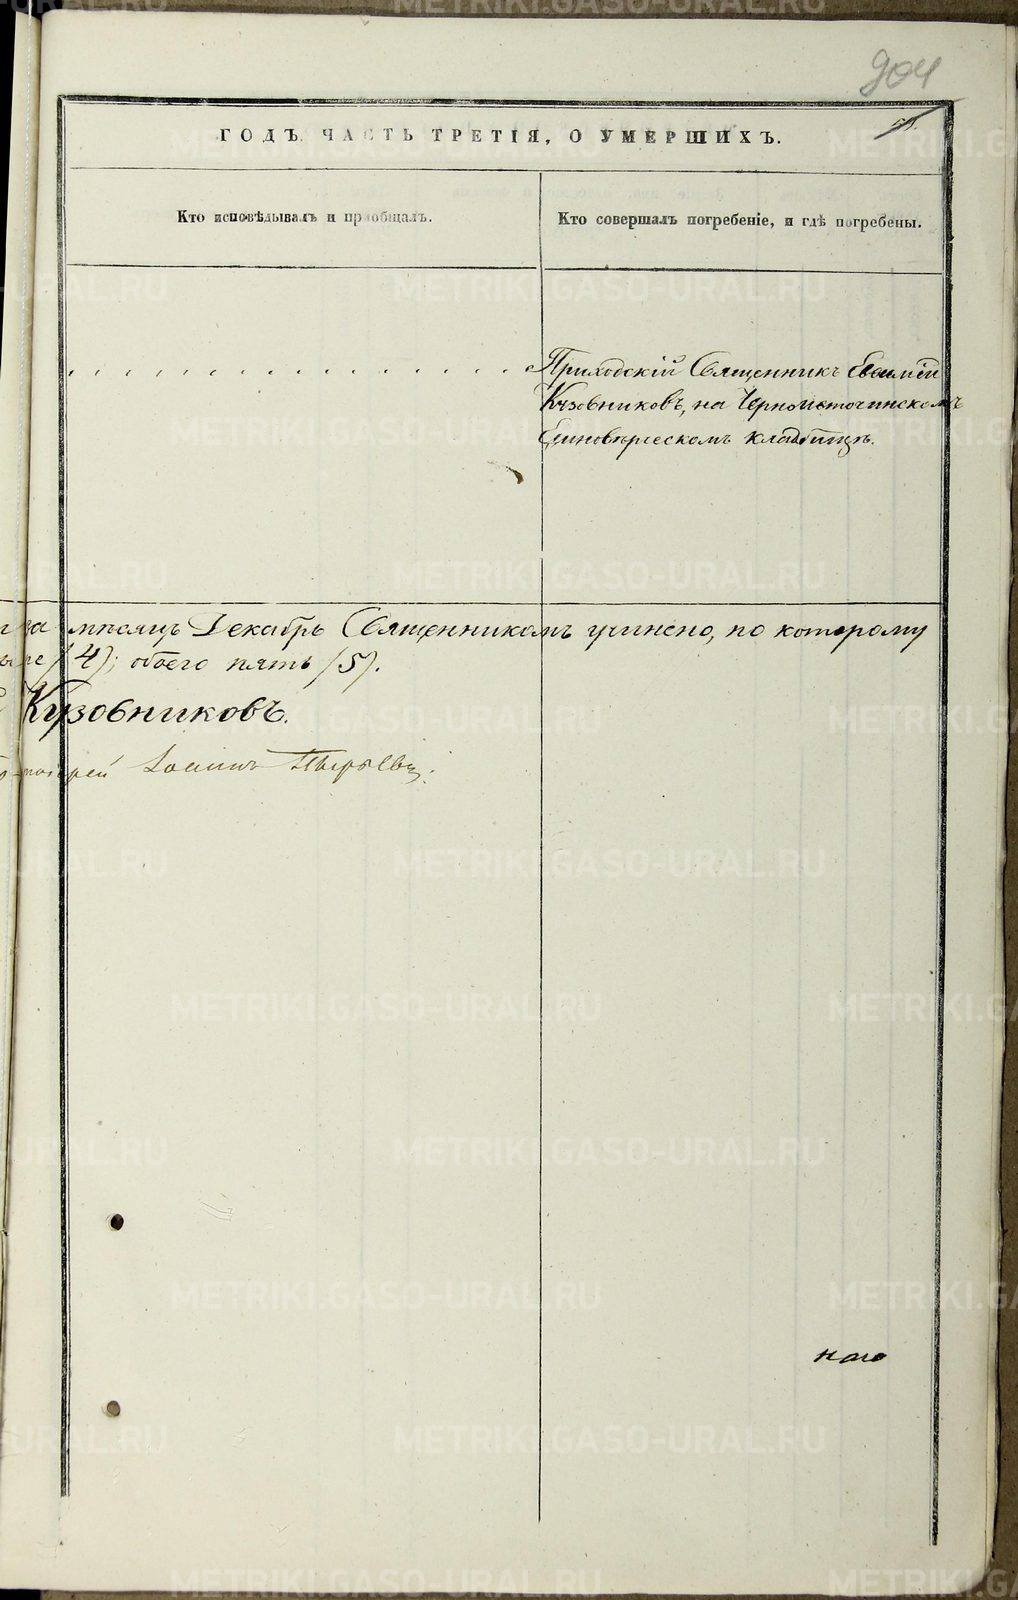 904
ГОДЪ. ЧАСТЬ ТРЕТІЯ, О УМЕРШИХЪ.
Кто исповѣдывалъ и пріобщалъ.
Кто совершалъ погребеніе, и гдѣ погребены.
Приходскій Священникъ Евѳимій
Кузовниковъ, на Черноисточинскомъ
Единовѣрческомъ кладбищѣ.
за мѣсяцъ Декабрь Священникомъ учинено, по которому
(4); обоего пять (5).
Кузовниковъ.
Іоаннъ
METRIKI.GASO-URAL.RU